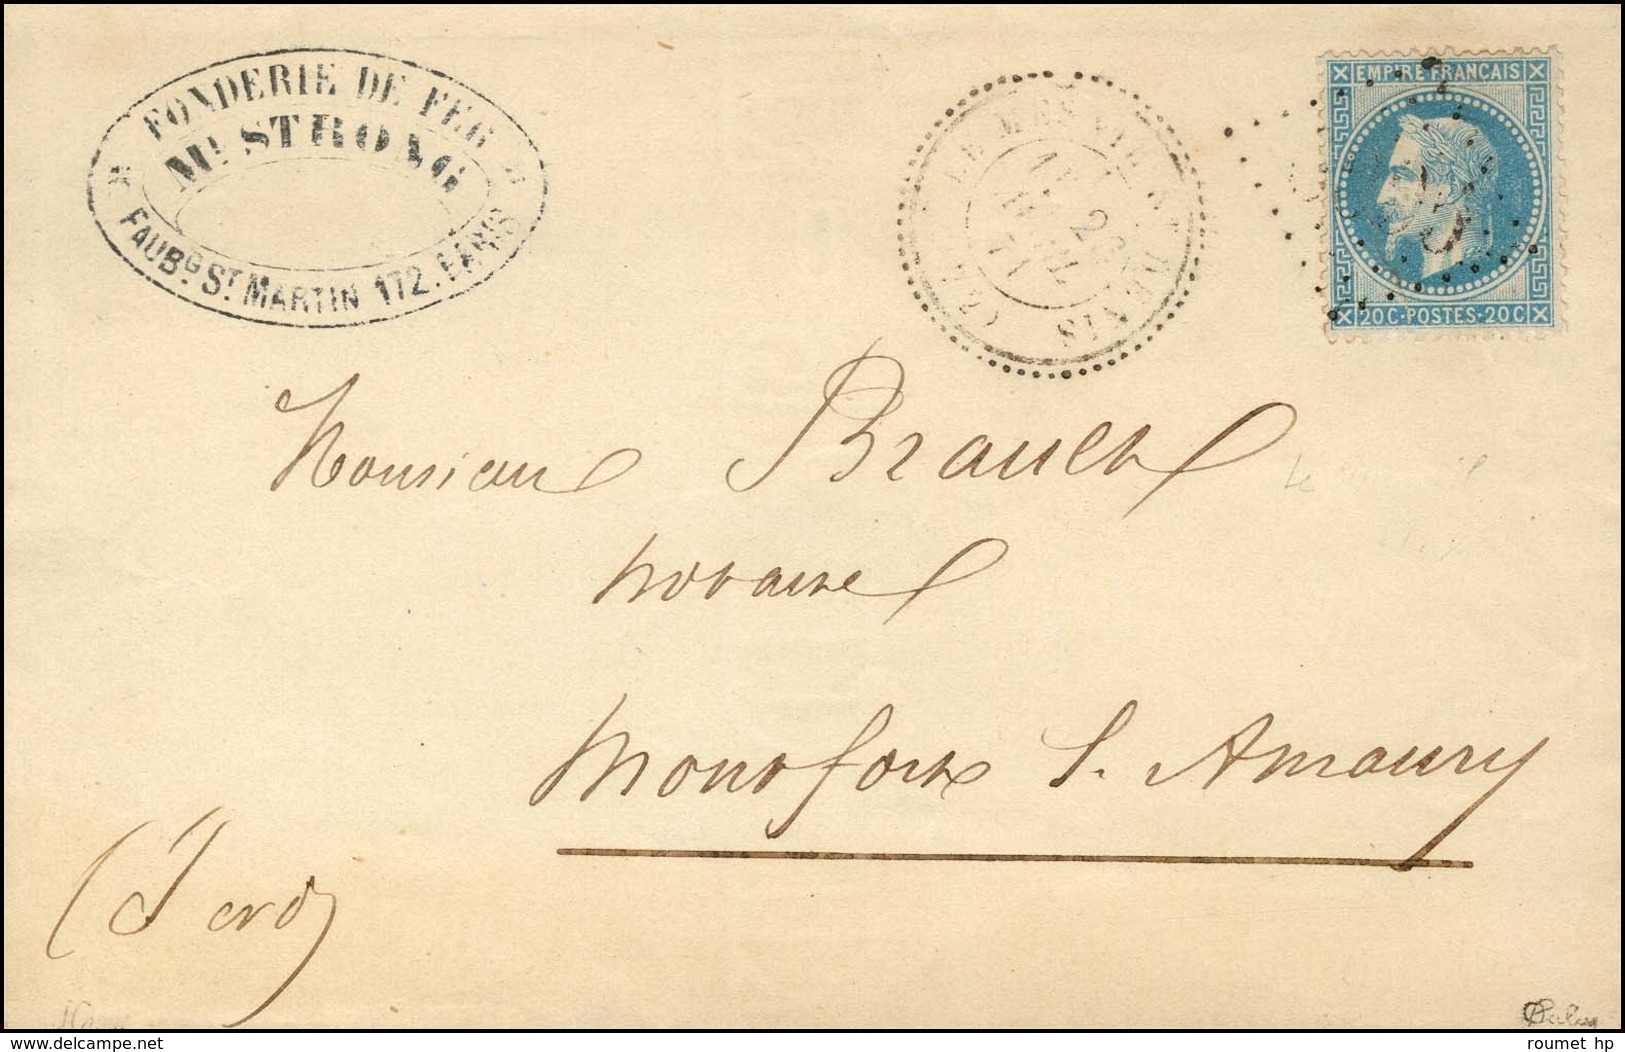 FONDERIE DE FER
Mn STRONG
FAUBG ST MARTIN 172. PARIS
LE MESNIL ST DENIS
28
71
EMPIRE FRANCAIS
20 C · POSTES · 20 C
Monsieur Brault
notaire
Montfort L. Amaury
roumet hp